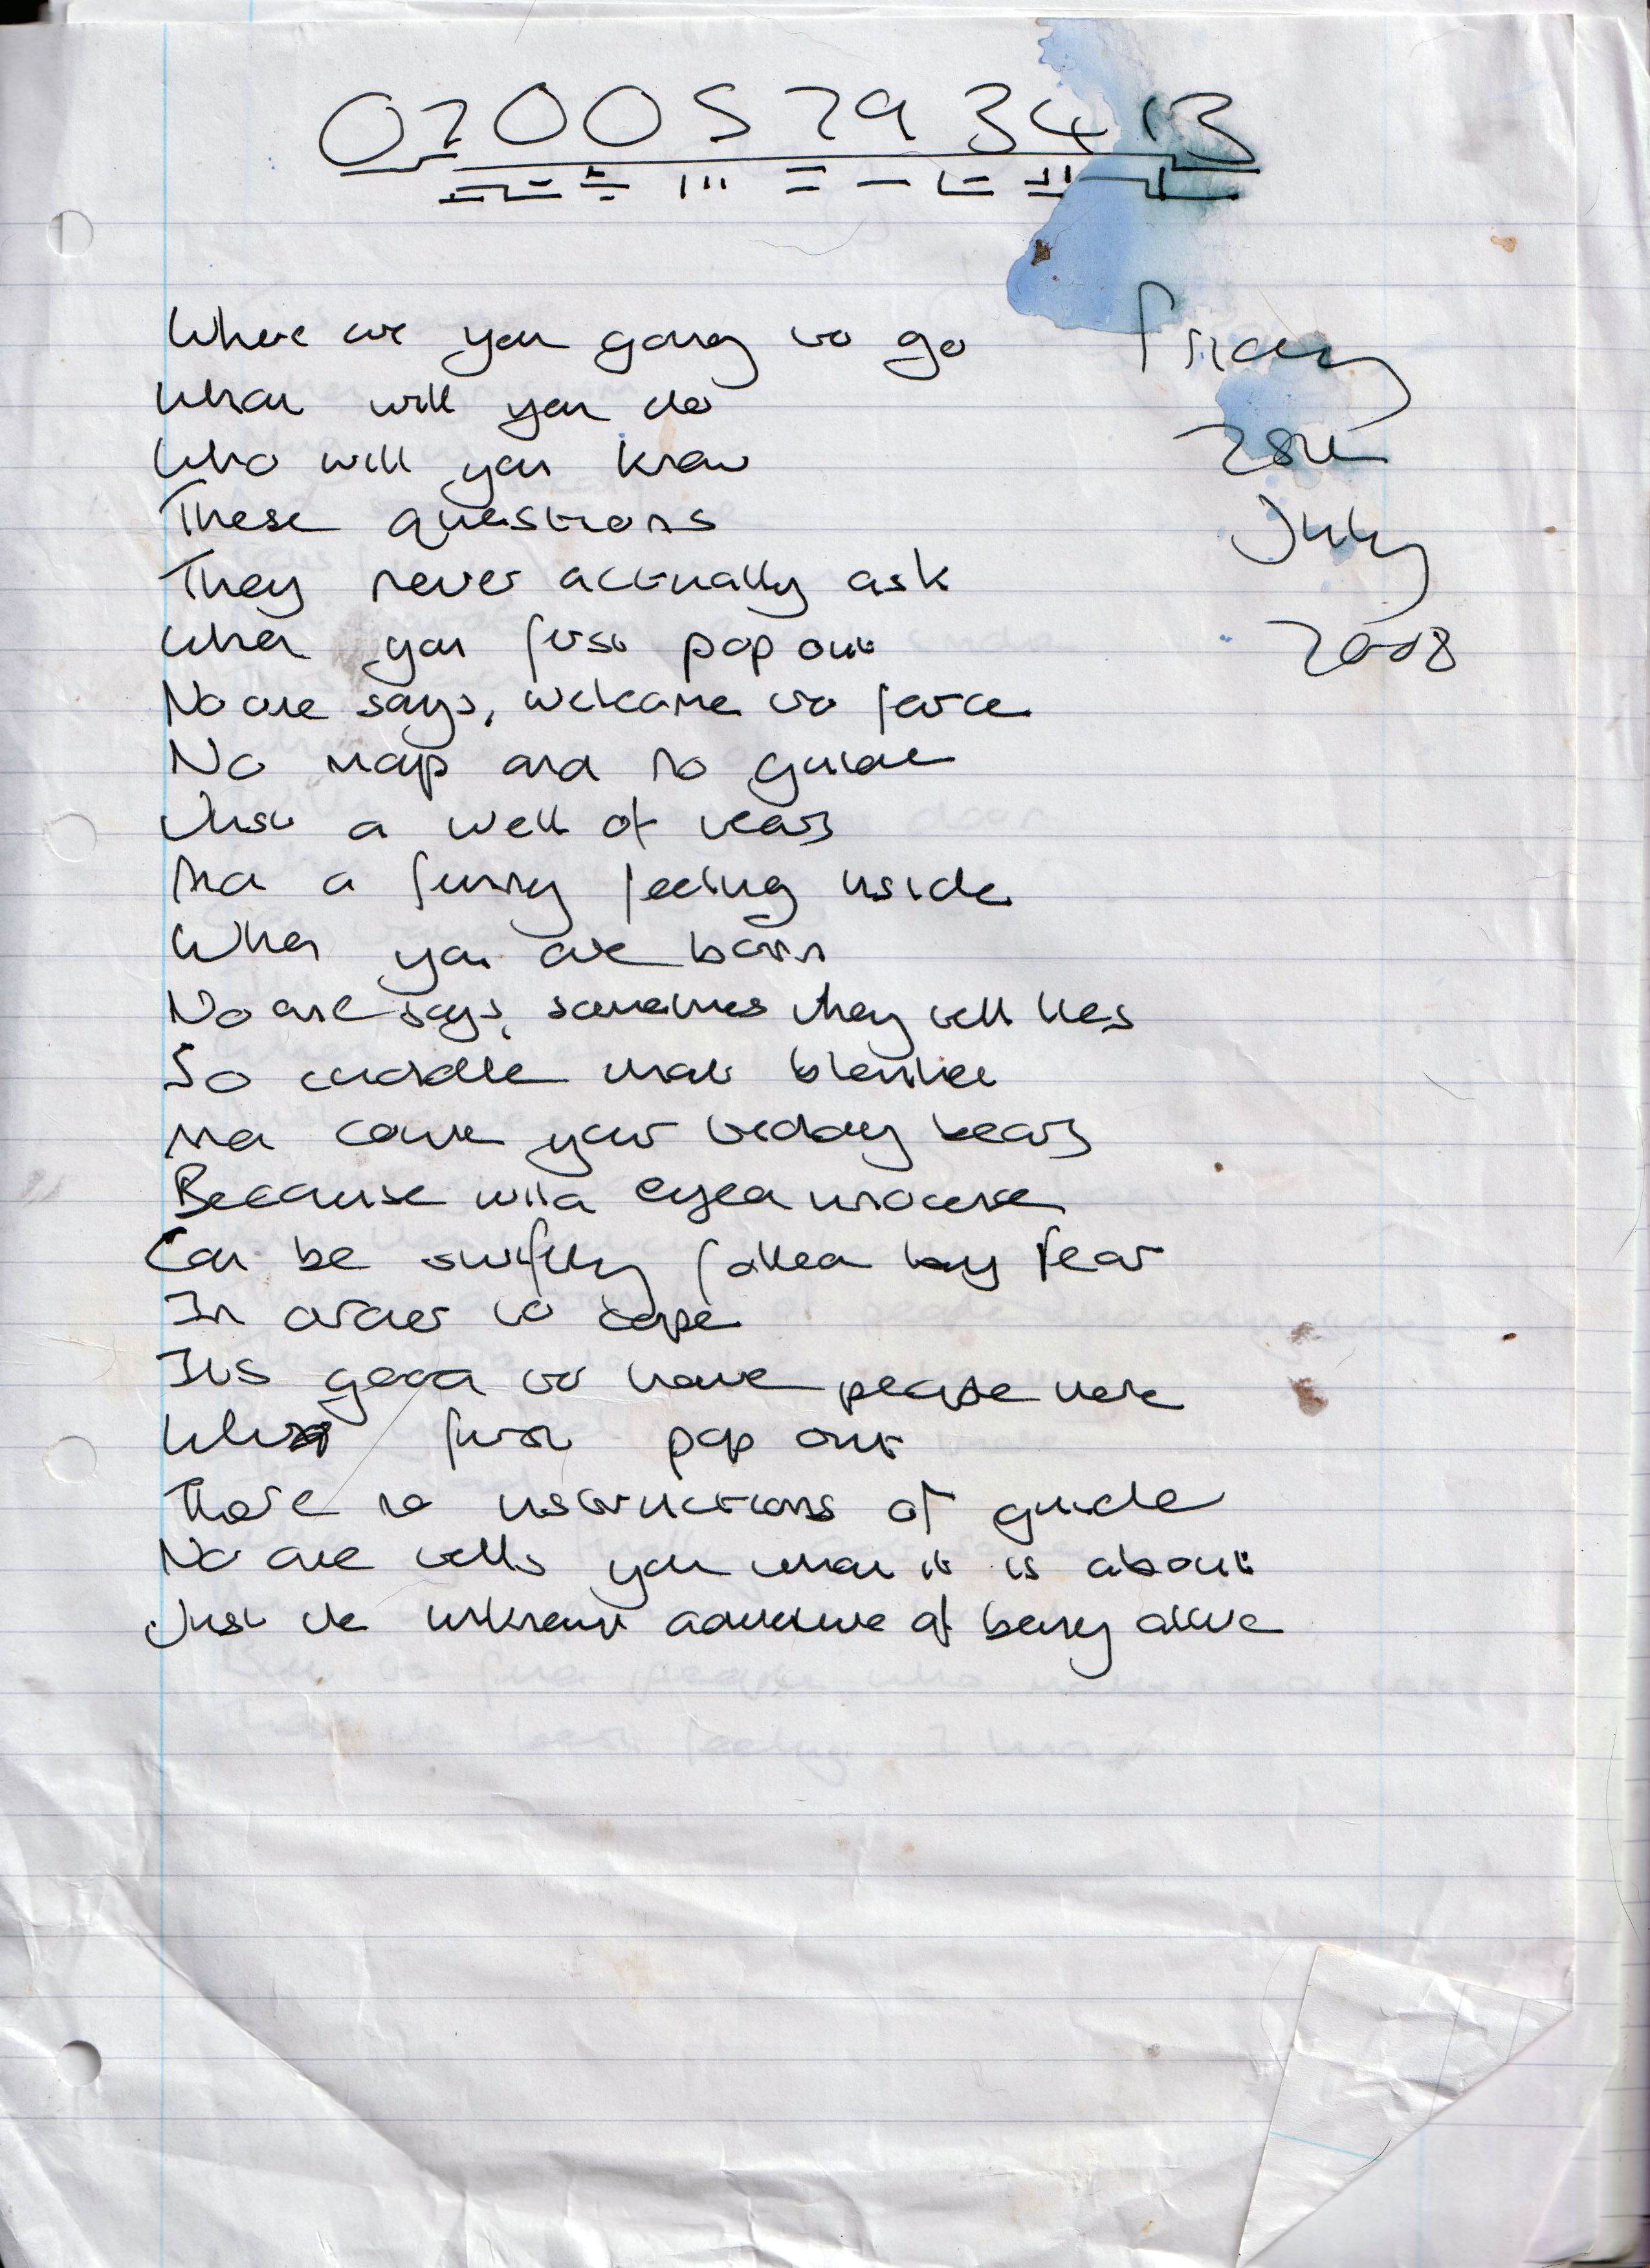 02005793413
Where are you going to go
What will you do
Who will you know
These questions
They never actually ask
When you first pop out
No one says, welcome to
No map and no guide
Just a well of tears
And a funny feeling inside
When you are born
No one says, sometimes they tell lies
So cuddle that blanket
And your teddy bears
Because wild eyed
Can be swiftly followed by fear
In order to cope
Its good to have people here
When first pop out
There no instructions of guide
No one tells you what it is about
Just the unknown adventure of being alive
Friday
July
2008